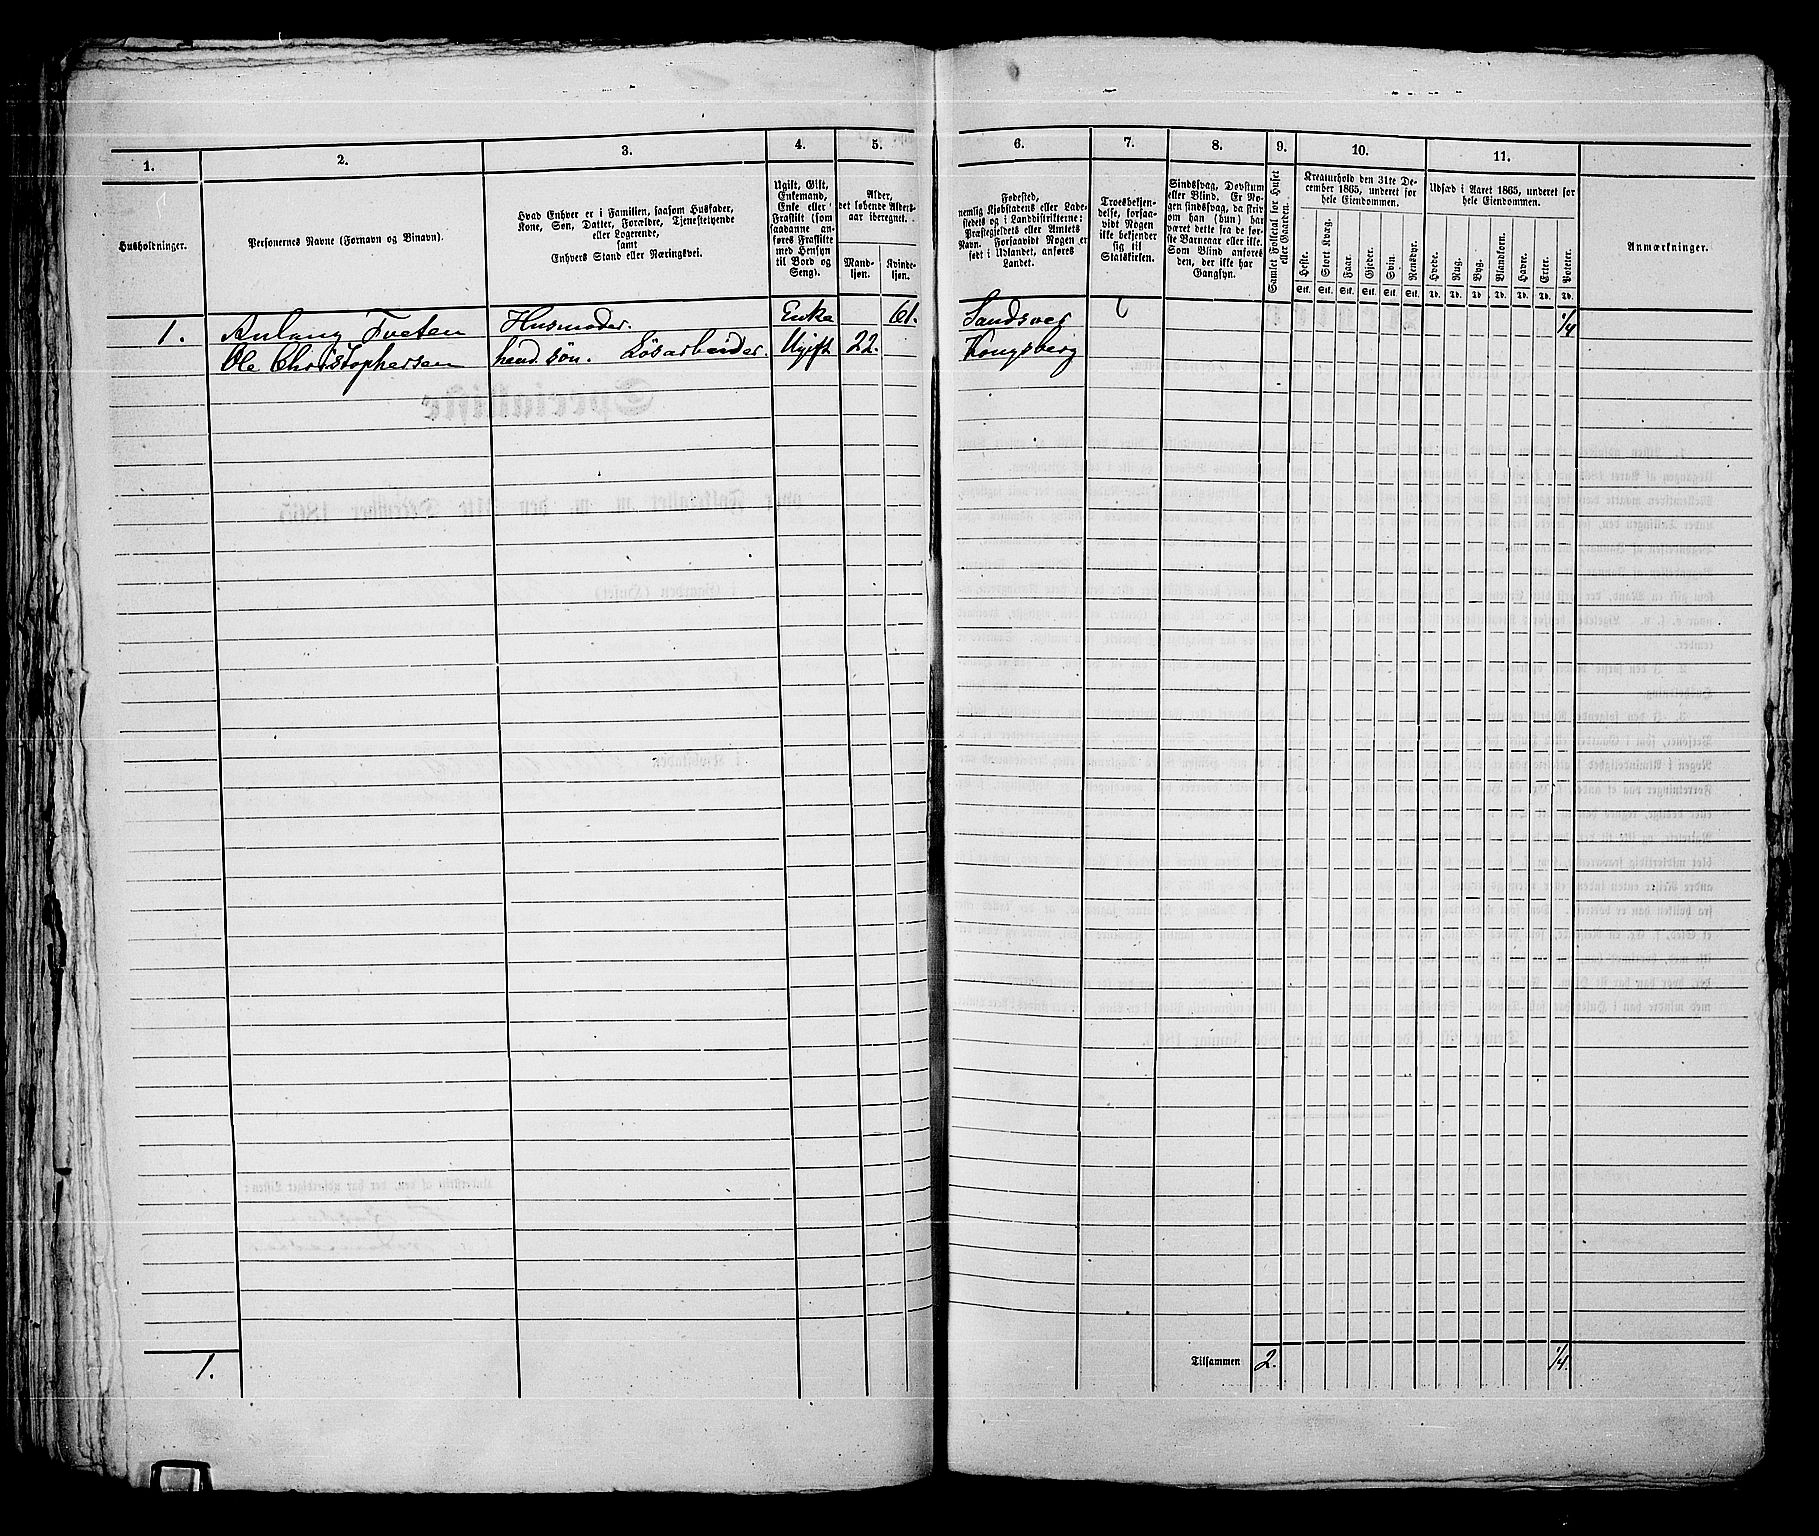 1.
2.
3.
4.
5.
6.
7.
8.
9.
10.
11.
Husholdninger.
Personernes Navne (Fornavn og Binavn).
Hvad Enhver er i Familien, saasom Husfader,
Kone, Søn, Datter, Forældre, Tjenestetyende
eller Logerende,
samt
Enhvers Stand eller Næringsvei.
Ugift, Gift,
Enkemand,
Enke eller
Fraskilt (som
saadanne an-
føres Fraskilte
med Hensyn
til Bord og
Seng).
Alder,
det løbende Alders-
aar iberegnet.
Mand-
kjøn.
Kvinde-
kjøn.
Fødested,
nemlig Kjøbstadens eller Lade-
stedets og i Landdistrikterne:
Præstegjeldets eller Amtets
Navn. Forsaavidt Nogen er
født i Udlandet, anføres
Landet.
Troesbekjen-
delse, forsaa-
vidt Nogen
ikke bekjender
sig til
Statskirken.
Sindssvag, Døvstum
eller Blind. Er No-
gen sindssvag, da skriv
om han (hun) har
været dette fra de før-
ste Barneaar eller ikke.
Som Blind anføres
den, der ikke har
Gangsyn.
Samlet Folketal for Huset
eller Gaarden.
Kreaturhold den 31te De-
cember 1865, underet for
hele Eiendommen.
Heste.
Stort Kvæg.
Faar.
Gjeder.
Svin.
Rensdyr.
Stk. Stk. Stk. Stk. Stk. Stk.
Udsæd i Aaret 1865, underet for
hele Eiendommen.
Hvede.
Rug.
Byg.
Blandkorn.
Havre.
Erter.
Poteter.
Td. Td. Td. Td. Td. Td. Td.
Anmærkninger.
1. Anlaug Tveten Husmoder. Enke 61. Sandsver 1/4
Ole Christophersen hend. søn. Løsarbeider. Ugift 22. Kongsberg
1. Tilsammen 2. 1/4.